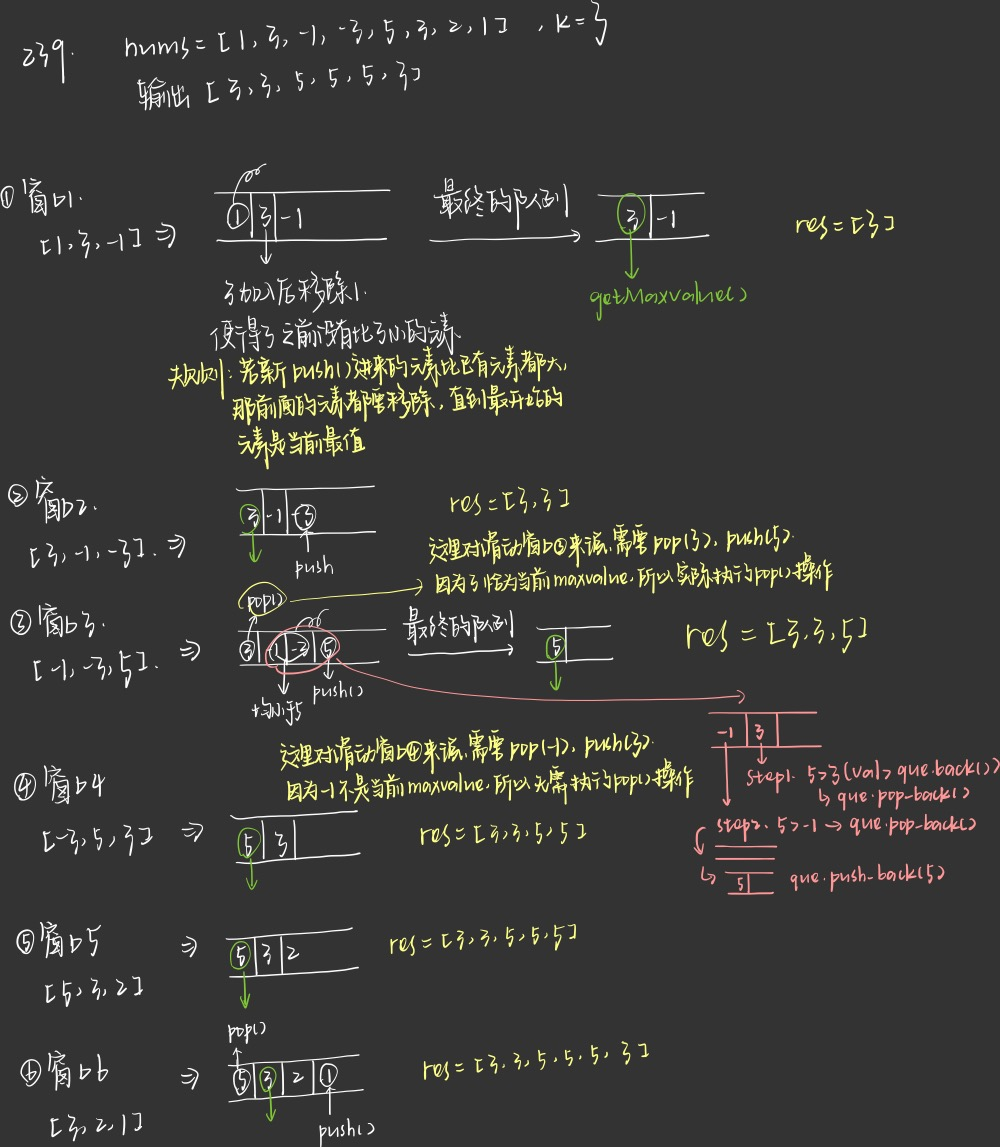 239. nums = [1, 3, -1, -3, 5, 3, 2, 1] , k = 3
输出 [3, 3, 5, 5, 5, 3]
① 窗口1.
[1, 3, -1] ⇒
1 3 -1
最终的队列
3 -1
res = [3]
3加入后移除1.
使得3之前没有比3小的元素.
getMaxvalue()
规则: 若新push()进来的元素比已有元素都大,
那前面的元素都要移除, 直到最开始的
元素是当前最值
② 窗口2.
[3, -1, -3]. ⇒
3 -1 -3
push
res = [3, 3]
这里对滑动窗口③来说, 需要pop(3), push(5).
因为3恰为当前maxvalue, 所以实际执行pop()操作
pop()
③ 窗口3.
[-1, -3, 5]. ⇒
3 -1 -3 5
最终的队列
5
res = [3, 3, 5]
均小于5
push()
-1 3
step1. 5>3 (val > que.back())
↳ que.pop-back()
step2. 5>-1 → que.pop-back()
5
que.push-back(5)
这里对滑动窗口④来说, 需要pop(-1), push(3).
因为-1不是当前maxvalue, 所以无需执行pop()操作
④ 窗口4
[-3, 5, 3] ⇒
5 3
res = [3, 3, 5, 5]
⑤ 窗口5 ⇒
[5, 3, 2]
5 3 2
res = [3, 3, 5, 5, 5]
pop()
⑥ 窗口6 ⇒
[3, 2, 1]
5 3 2 1
res = [3, 3, 5, 5, 5, 3]
push()